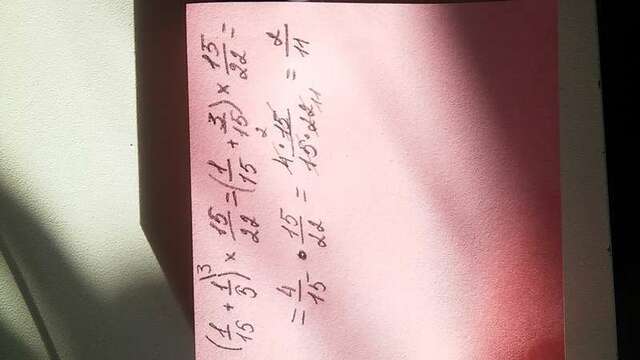 (1/15 + 1/5)³ × 15/22 = (1/15 + 3/15) × 15/22 =
= 4/15 • 15/22 = 4 • 15 2/15 • 22 11 = 2/11